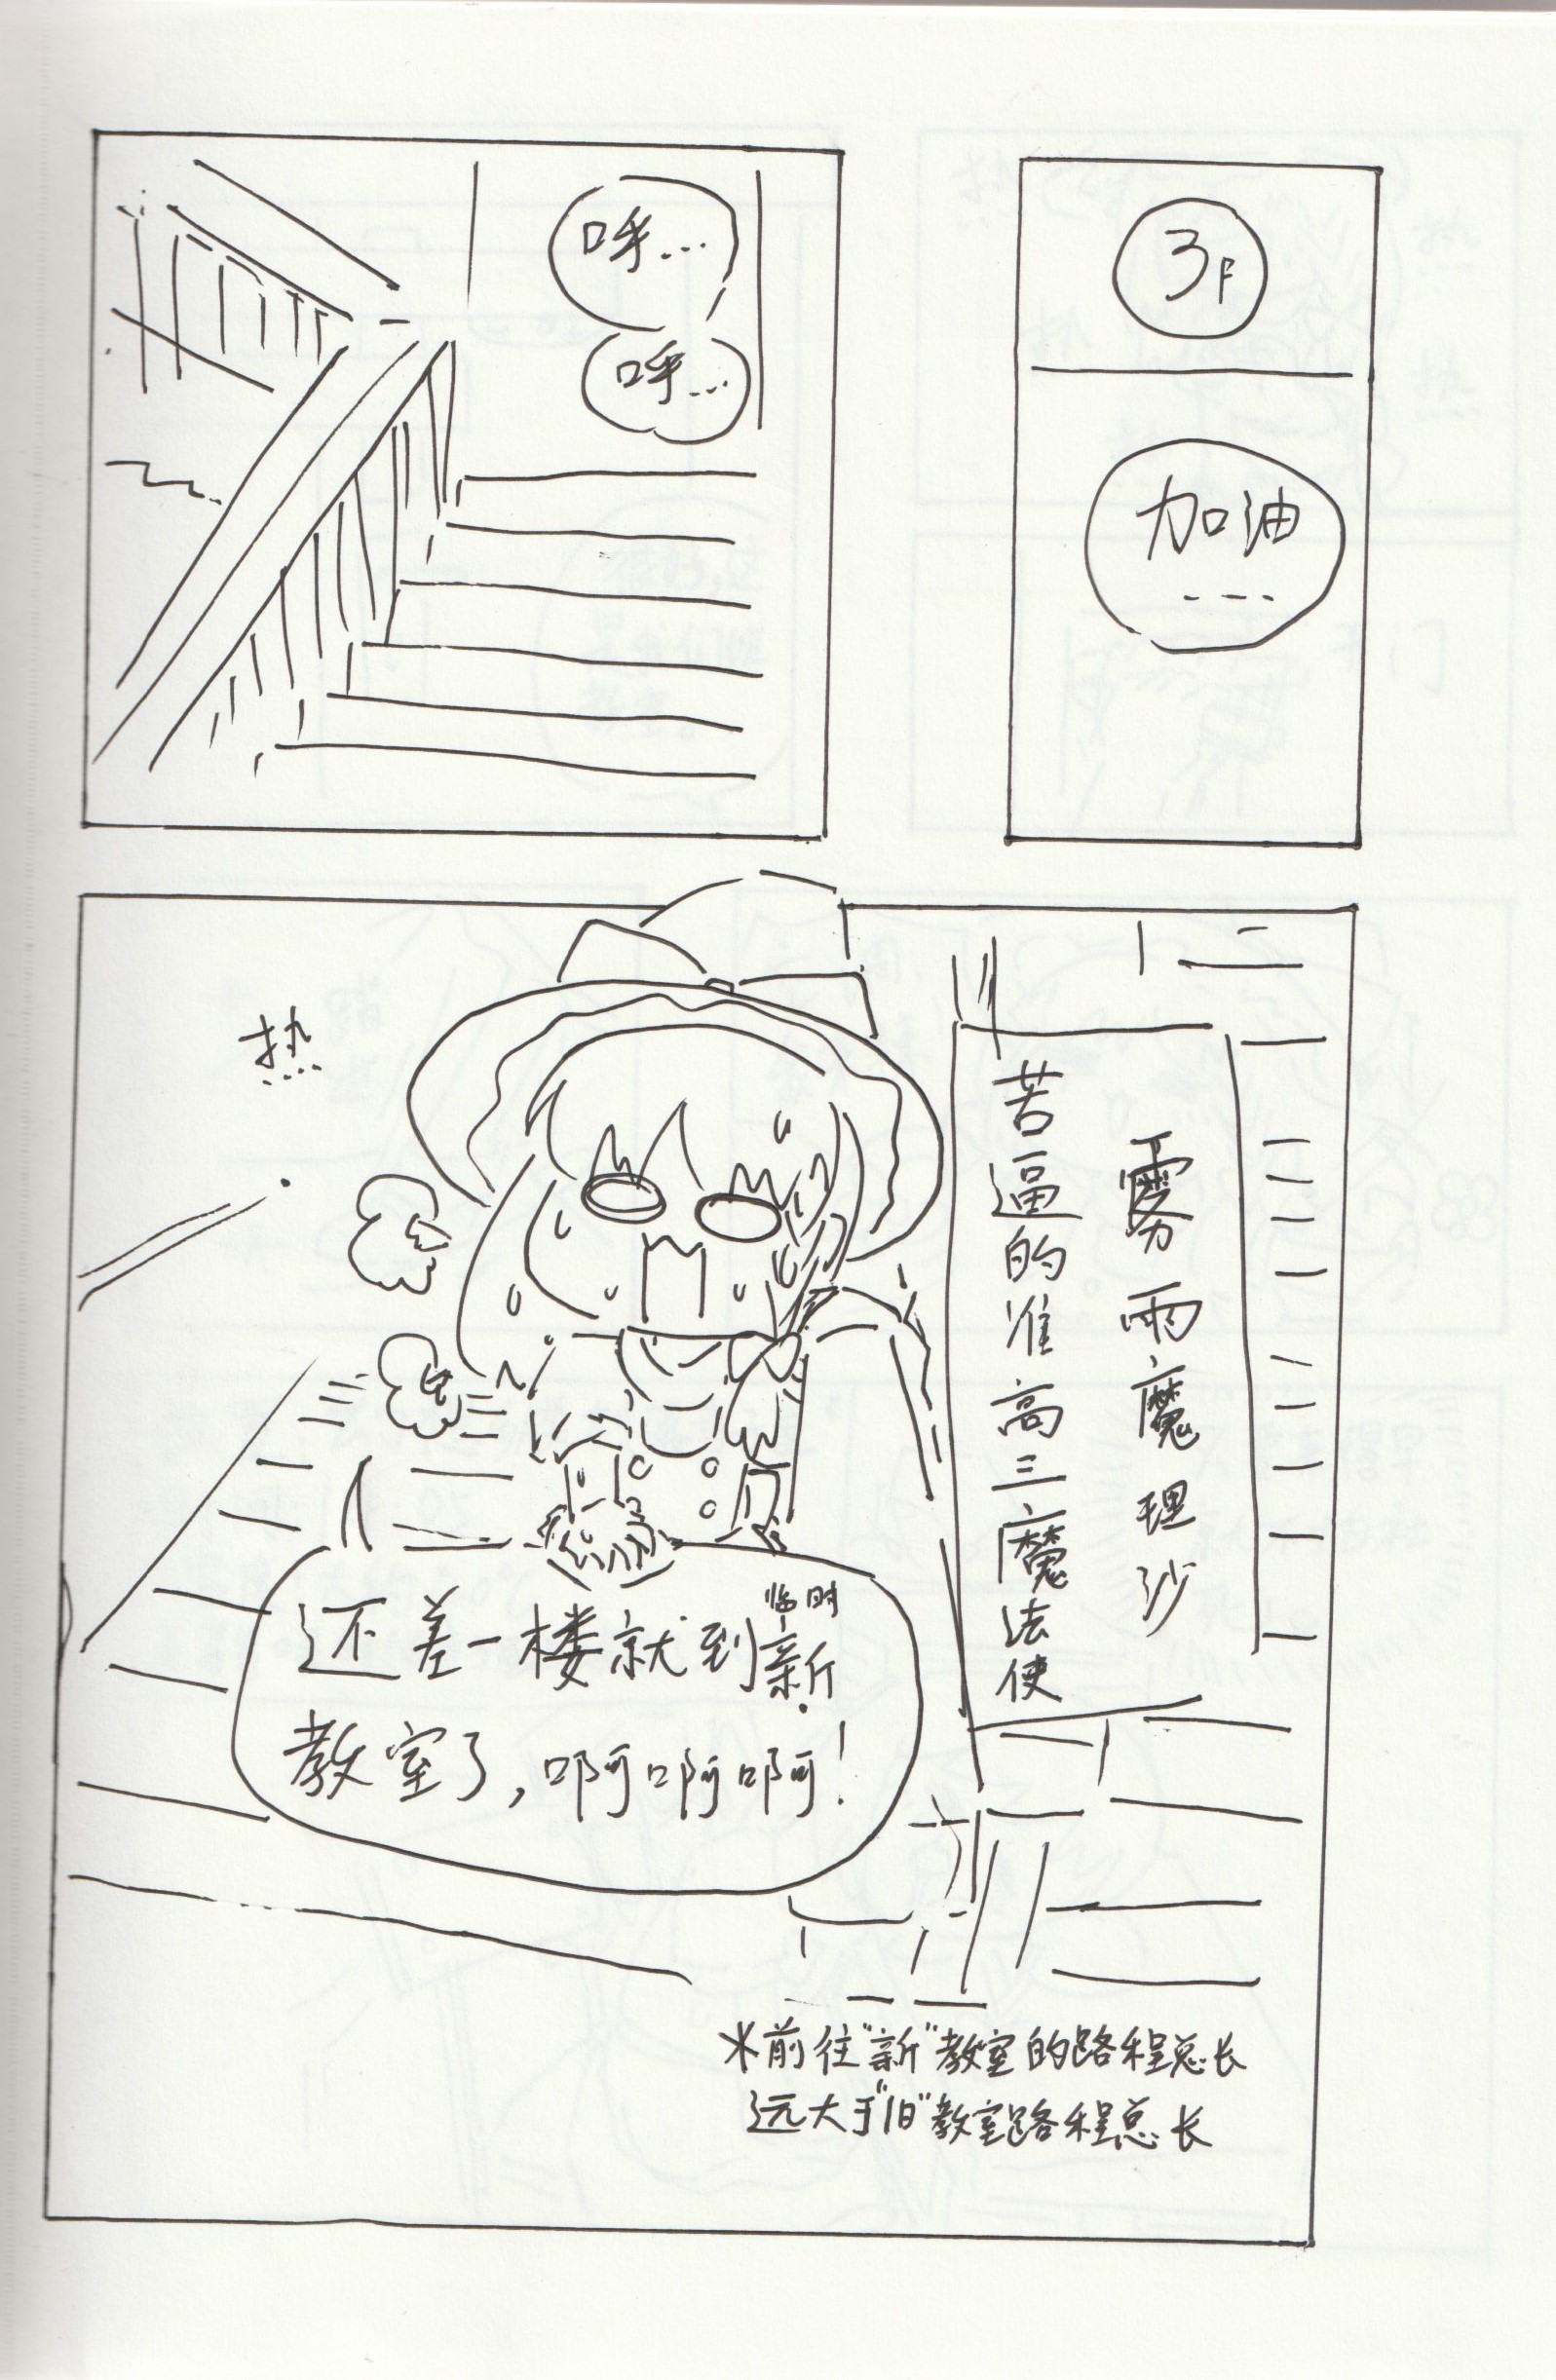 3F
加油
....
呼...
呼...
雾雨魔理沙
苦逼的准高三魔法使
热
...
临时
还差一楼就到新
教室了，啊啊啊！
*前往“新”教室的路程总长
远大于“旧”教室路程总长